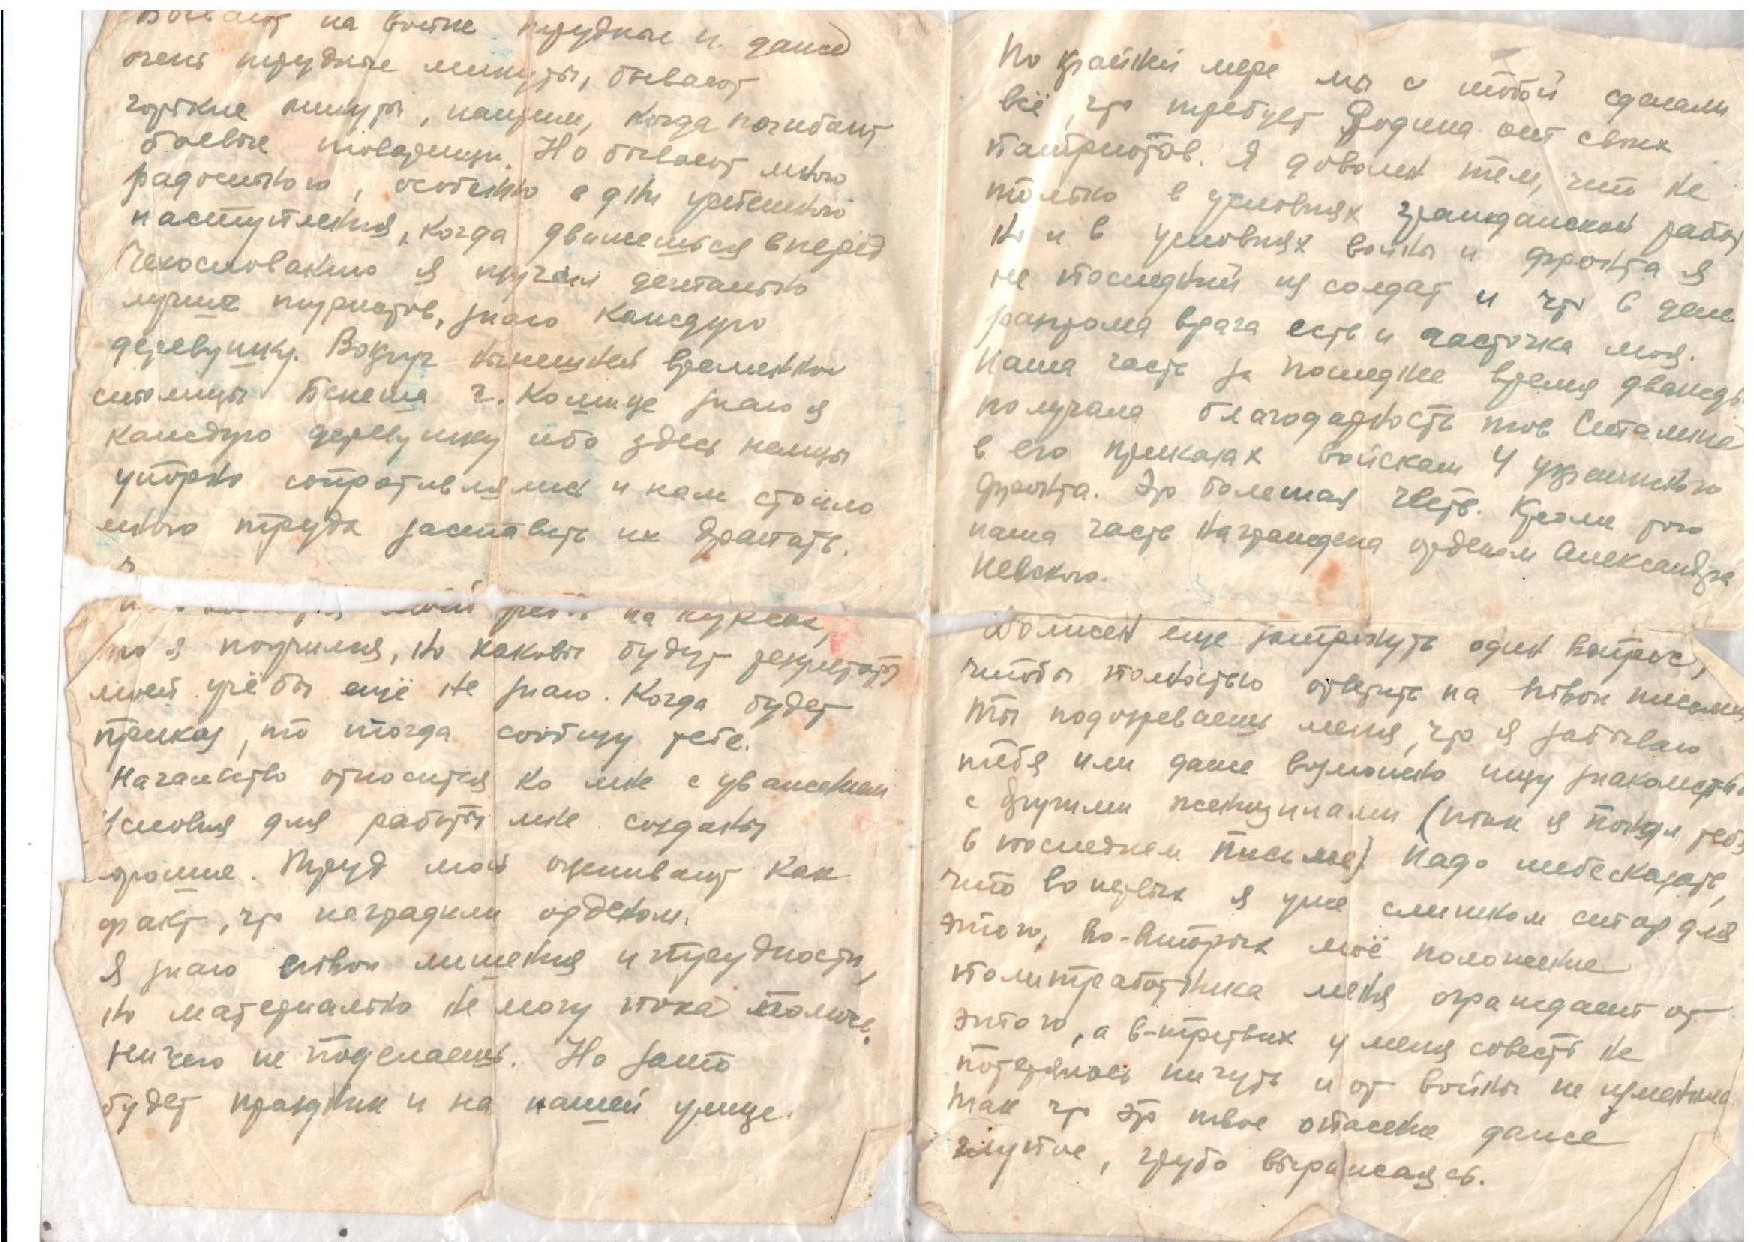 Бывают на войне трудные и даже
очень трудные минуты, бывают
горькие минуты, наприм, когда погибают
боевые товарищи. Но бывает много
радостного, особенно в дни успешного
наступления, когда движешься вперёд
Чехословакию я изучил детально
лучше туристов, знаю каждую
деревушку. Вокруг нынешней временной
столицы Бенеша г. Кошице знаю я
каждую деревушку ибо здесь немцы
упорно сопротивлялись и нам стоило
много труда заставить их драпать.
на курсах,
то я подучился, но каковы будут результаты
моей учёбы ещё не знаю. Когда будет
приказ, то тогда сообщу тебе.
Начальство относится ко мне с уважением
Условия для работы мне созданы
хорошие. Труд мой оценивают как
факт, что наградили орденом.
Я знаю твои лишения и трудности,
но материально не могу пока помочь.
Ничего не поделаешь. Но зато
будет праздник и на нашей улице.
По крайней мере мы с тобой сделали
всё, что требует Родина от своих
патриотов. Я доволен тем, что не
только в условиях гражданской работы
но и в условиях войны и фронта я
не последний из солдат и что в деле
разгрома врага есть и частичка моя.
Наша часть за последнее время дважды
получала благодарность тов Сталина
в его приказах войскам 4 украинского
фронта. Это большая честь. Кроме того
наша часть награждена орденом Александра
Невского.
Должен еще затронуть один вопрос,
чтобы полностью ответить на твои письма
Ты подозреваешь меня, что я забываю
тебя или даже возможно ищу знакомства
с другими женщинами (так я понял тебя
в последнем письме) Надо тебе сказать,
что во первых я уже слишком стар для
этого, во-вторых моё положение
политработника меня ограждает от
этого, а в-третьих у меня совесть не
потерялась ничуть и от войны не изменилась
Так что это твое опасение даже
глупое, грубо выражаясь.